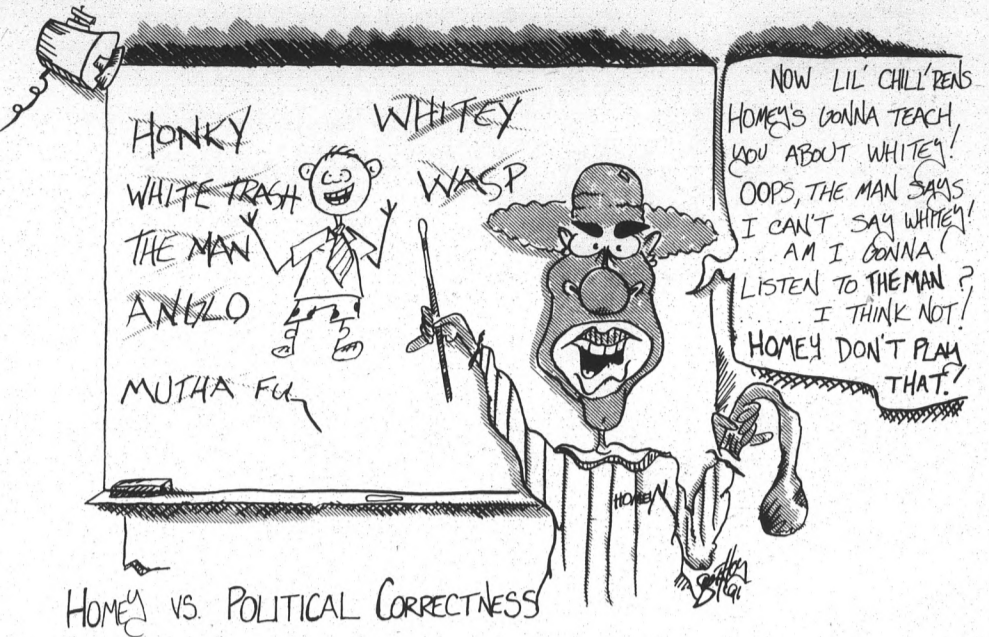 HONKY
WHITEY
WHITE TRASH
WASP
THE MAN
ANGLO
MUTHA FU
NOW LIL' CHILL'RENS
HOMEY'S GONNA TEACH
YOU ABOUT WHITEY!
OOPS, THE MAN SAYS
I CAN'T SAY WHITEY!
... AM I GONNA
LISTEN TO THE MAN?
... I THINK NOT!
HOMEY DON'T PLAY
THAT!
HOMEY
'91
HOMEY VS. POLITICAL CORRECTNESS